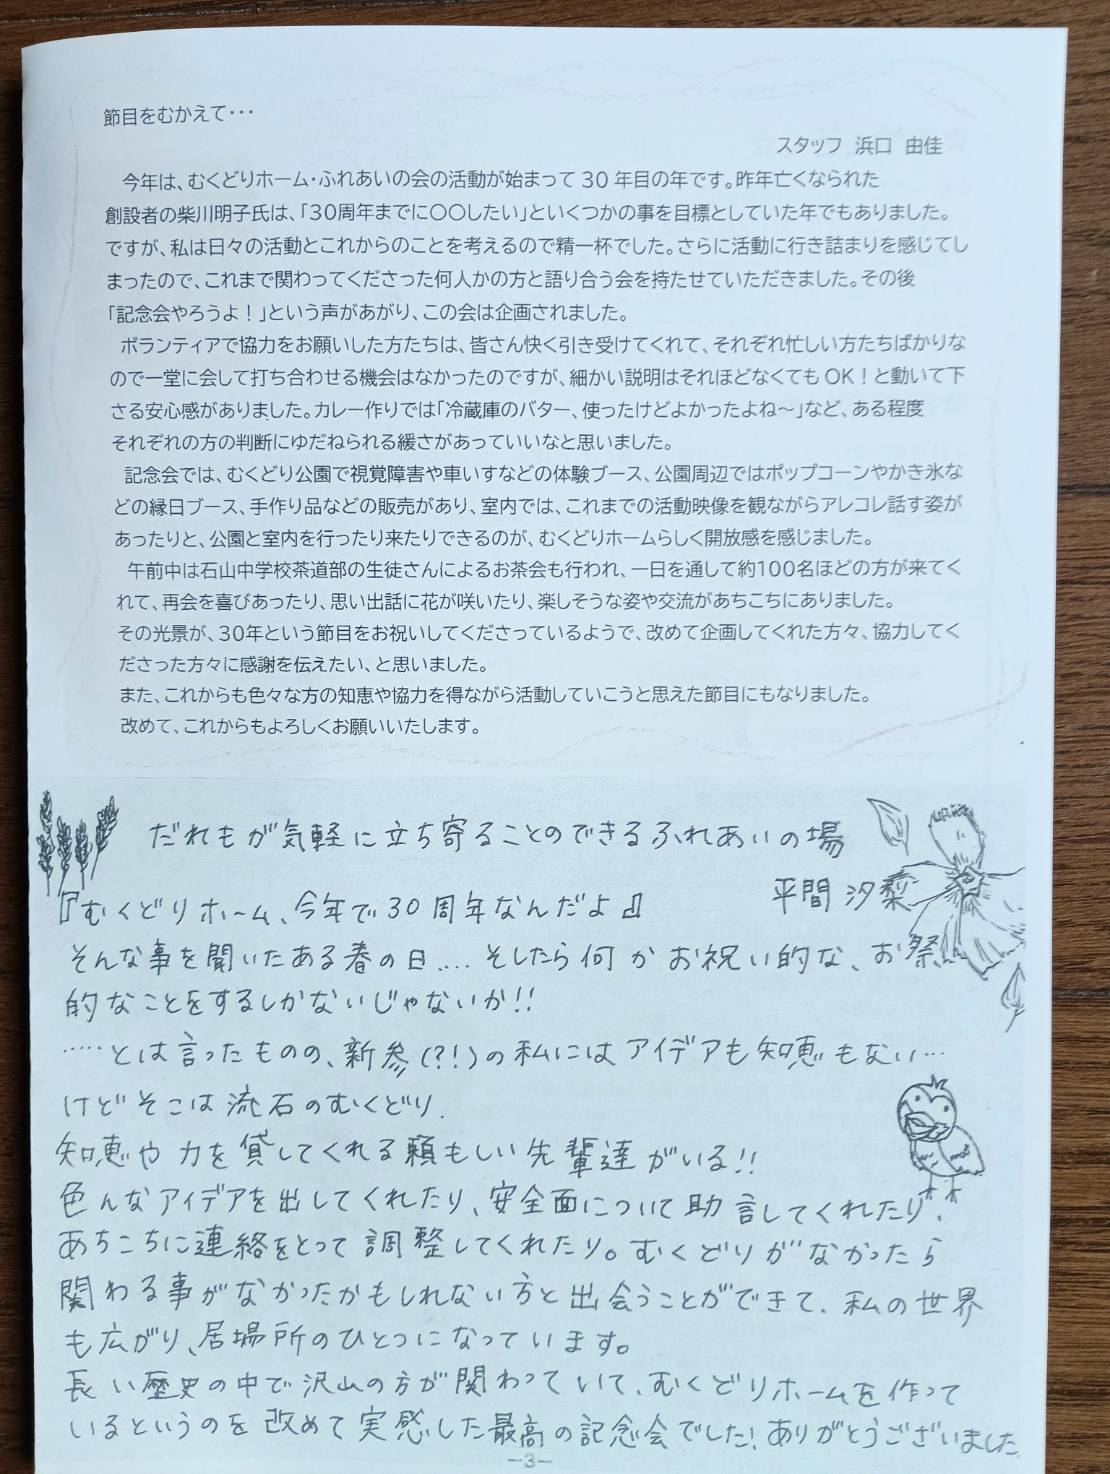 節目をむかえて・・・
スタッフ 浜口 由佳
今年は、むくどりホーム・ふれあいの会の活動が始まって30年目の年です。昨年亡くなられた
創設者の柴川明子氏は、「30周年までに〇〇したい」といくつかの事を目標としていた年でもありました。
ですが、私は日々の活動とこれからのことを考えるので精一杯でした。さらに活動に行き詰まりを感じてし
まったので、これまで関わってくださった何人かの方と語り合う会を持たせていただきました。その後
「記念会やろうよ！」という声があがり、この会は企画されました。
ボランティアで協力をお願いした方たちは、皆さん快く引き受けてくれて、それぞれ忙しい方たちばかりな
ので一堂に会して打ち合わせる機会はなかったのですが、細かい説明はそれほどなくてもOK！と動いて下
さる安心感がありました。カレー作りでは「冷蔵庫のバター、使ったけどよかったよね～」など、ある程度
それぞれの方の判断にゆだねられる緩さがあっていいなと思いました。
記念会では、むくどり公園で視覚障害や車いすなどの体験ブース、公園周辺ではポップコーンやかき氷な
どの縁日ブース、手作り品などの販売があり、室内では、これまでの活動映像を観ながらアレコレ話す姿が
あったりと、公園と室内を行ったり来たりできるのが、むくどりホームらしく開放感を感じました。
午前中は石山中学校茶道部の生徒さんによるお茶会も行われ、一日を通して約100名ほどの方が来てく
れて、再会を喜びあったり、思い出話に花が咲いたり、楽しそうな姿や交流があちこちにありました。
その光景が、30年という節目をお祝いしてくださっているようで、改めて企画してくれた方々、協力してく
ださった方々に感謝を伝えたい、と思いました。
また、これからも色々な方の知恵や協力を得ながら活動していこうと思えた節目にもなりました。
改めて、これからもよろしくお願いいたします。
だれもが気軽に立ち寄ることのできるふれあいの場
平間 汐梨
『むくどりホーム、今年で30周年なんだよ』
そんな事を聞いたある春の日‥‥そしたら何かお祝い的な、お祭
的なことをするしかないじゃないか!!
‥‥‥とは言ったものの、新参(?!)の私にはアイデアも知恵もない…
けどそこは流石のむくどり。
知恵や力を貸してくれる頼もしい先輩達がいる!!
色んなアイデアを出してくれたり、安全面について助言してくれたり、
あちこちに連絡をとって調整してくれたり。むくどりがなかったら
関わる事がなかったかもしれない方と出会うことができて、私の世界
も広がり、居場所のひとつになっています。
長い歴史の中で沢山の方が関わっていて、むくどりホームを作って
いるというのを改めて実感した最高の記念会でした！ありがとうございました
-3-